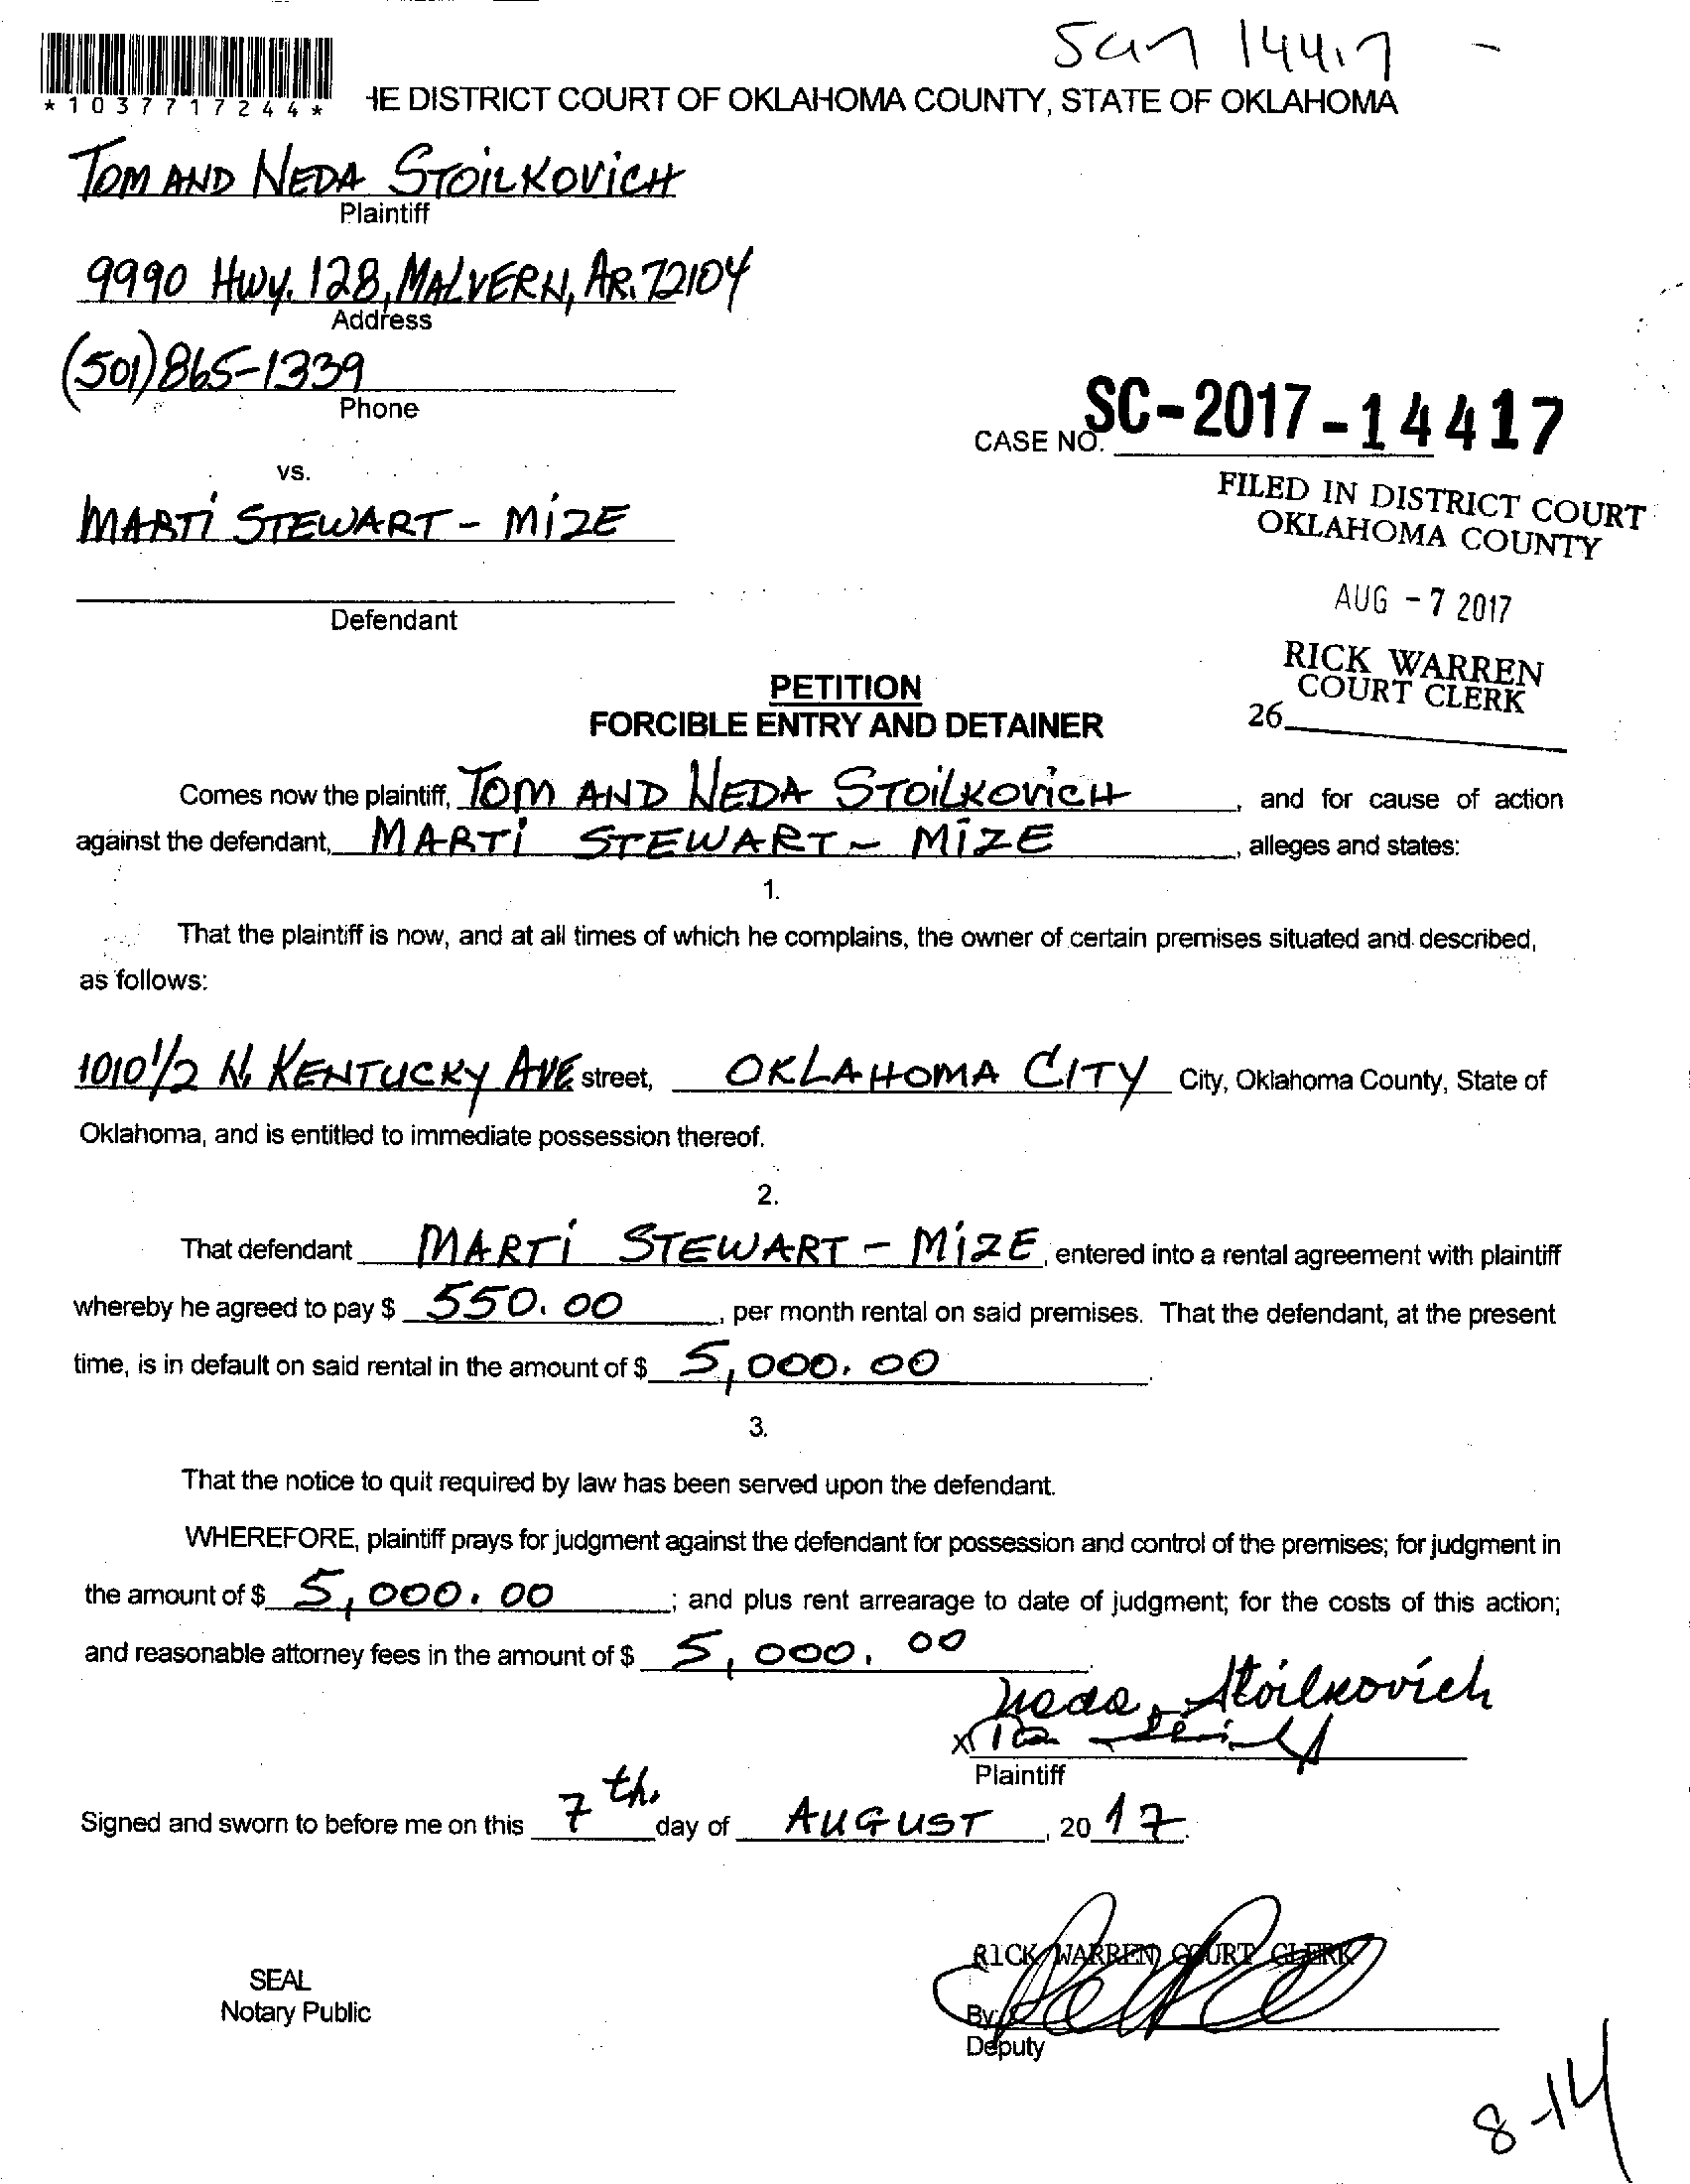 14417 -
*1037717244*
HE DISTRICT COURT OF OKLAHOMA COUNTY, STATE OF OKLAHOMA
TOM AND NEDA STOILKOVICH
Plaintiff
9990 HWY. 128, MALVERN, AR. 72104
Address
(501) 865-1339
Phone
CASE NO. SC-2017-14417
vs.
FILED IN DISTRICT COURT
OKLAHOMA COUNTY
MARTI STEWART - MIZE
AUG - 7 2017
Defendant
RICK WARREN
COURT CLERK
26
PETITION
FORCIBLE ENTRY AND DETAINER
Comes now the plaintiff, TOM AND NEDA STOILKOVICH, and for cause of action
against the defendant, MARTI STEWART - MIZE, alleges and states:
1.
That the plaintiff is now, and at all times of which he complains, the owner of certain premises situated and described,
as follows:
1010 1/2 N. KENTUCKY AVE street, OKLAHOMA CITY City, Oklahoma County, State of
Oklahoma, and is entitled to immediate possession thereof.
2.
That defendant MARTI STEWART - MIZE, entered into a rental agreement with plaintiff
whereby he agreed to pay $ 550.00, per month rental on said premises. That the defendant, at the present
time, is in default on said rental in the amount of $ 5,000.00.
3.
That the notice to quit required by law has been served upon the defendant.
WHEREFORE, plaintiff prays for judgment against the defendant for possession and control of the premises; for judgment in
the amount of $ 5,000.00; and plus rent arrearage to date of judgment; for the costs of this action;
and reasonable attorney fees in the amount of $ 5,000.00.
Neda Stoilkovich
X
Plaintiff
Signed and sworn to before me on this 7th. day of AUGUST, 2017.
RICK WARREN, COURT CLERK
SEAL
Notary Public
By
Deputy
8-14